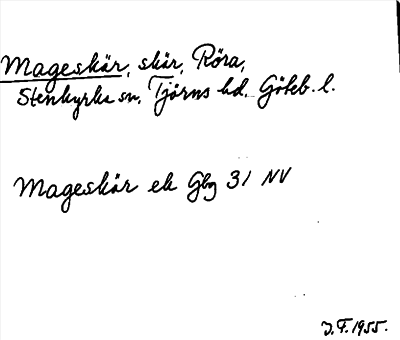 Mageskär, skär, Röra,
Stenkyrka sn, Tjörns hd. Göteb. l.
Mageskär ek Gbg 31 NV
J.F. 1955.